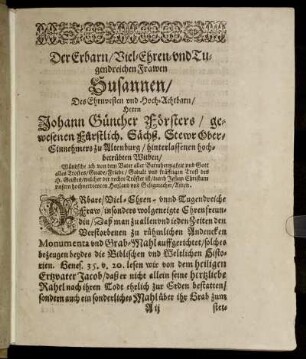 Der Erbarn/ Viel-Ehren-vnd Tu-
gendreichen Frawen
Susannen/
Des Ehrnvesten vnd Hoch-Achtbarn/
Herrn
Johann Günther Försters/ ge-
wesenen Fürstlich. Sächß. Stewr Ober-
Einnehmers zu Altenburg/ hinterlassenen hoch-
betrübten Witben/
Wündsche ich von dem Vater aller Barmhertzigkeit vnd Gott
alles Trostes/ Gnade/ Friede/ Gedult vnd kräfftigen Trost des
H. Geistes/ welcher der rechte Tröster ist durch Jesum Christum
vnsern hochverdienten Heyland vnd Seligmacher/ Amen.
ERbare/ Viel-Ehren- vnd Tugendreiche
Fraw/ insonders wolgeneigte Ehrenfreun-
din/ Daß man zu allen vnd jeden Zeiten den
Verstorbenen zu rühmlichen Andencken
Monumenta vnd Grab-Mahl auffgerichtet/ solches
bezeugen beydes die Biblischen vnd Weltlichen Histo-
rien. Genes. 35, v. 20. lesen wir von dem heiligen
Ertzvater Jacob/ daß er nicht allein seine hertzliebe
Rahel nach ihrem Tode ehrlich zur Erden bestatten/
sondern auch ein sonderliches Mahl über ihr Grab zum
A ij
stets-